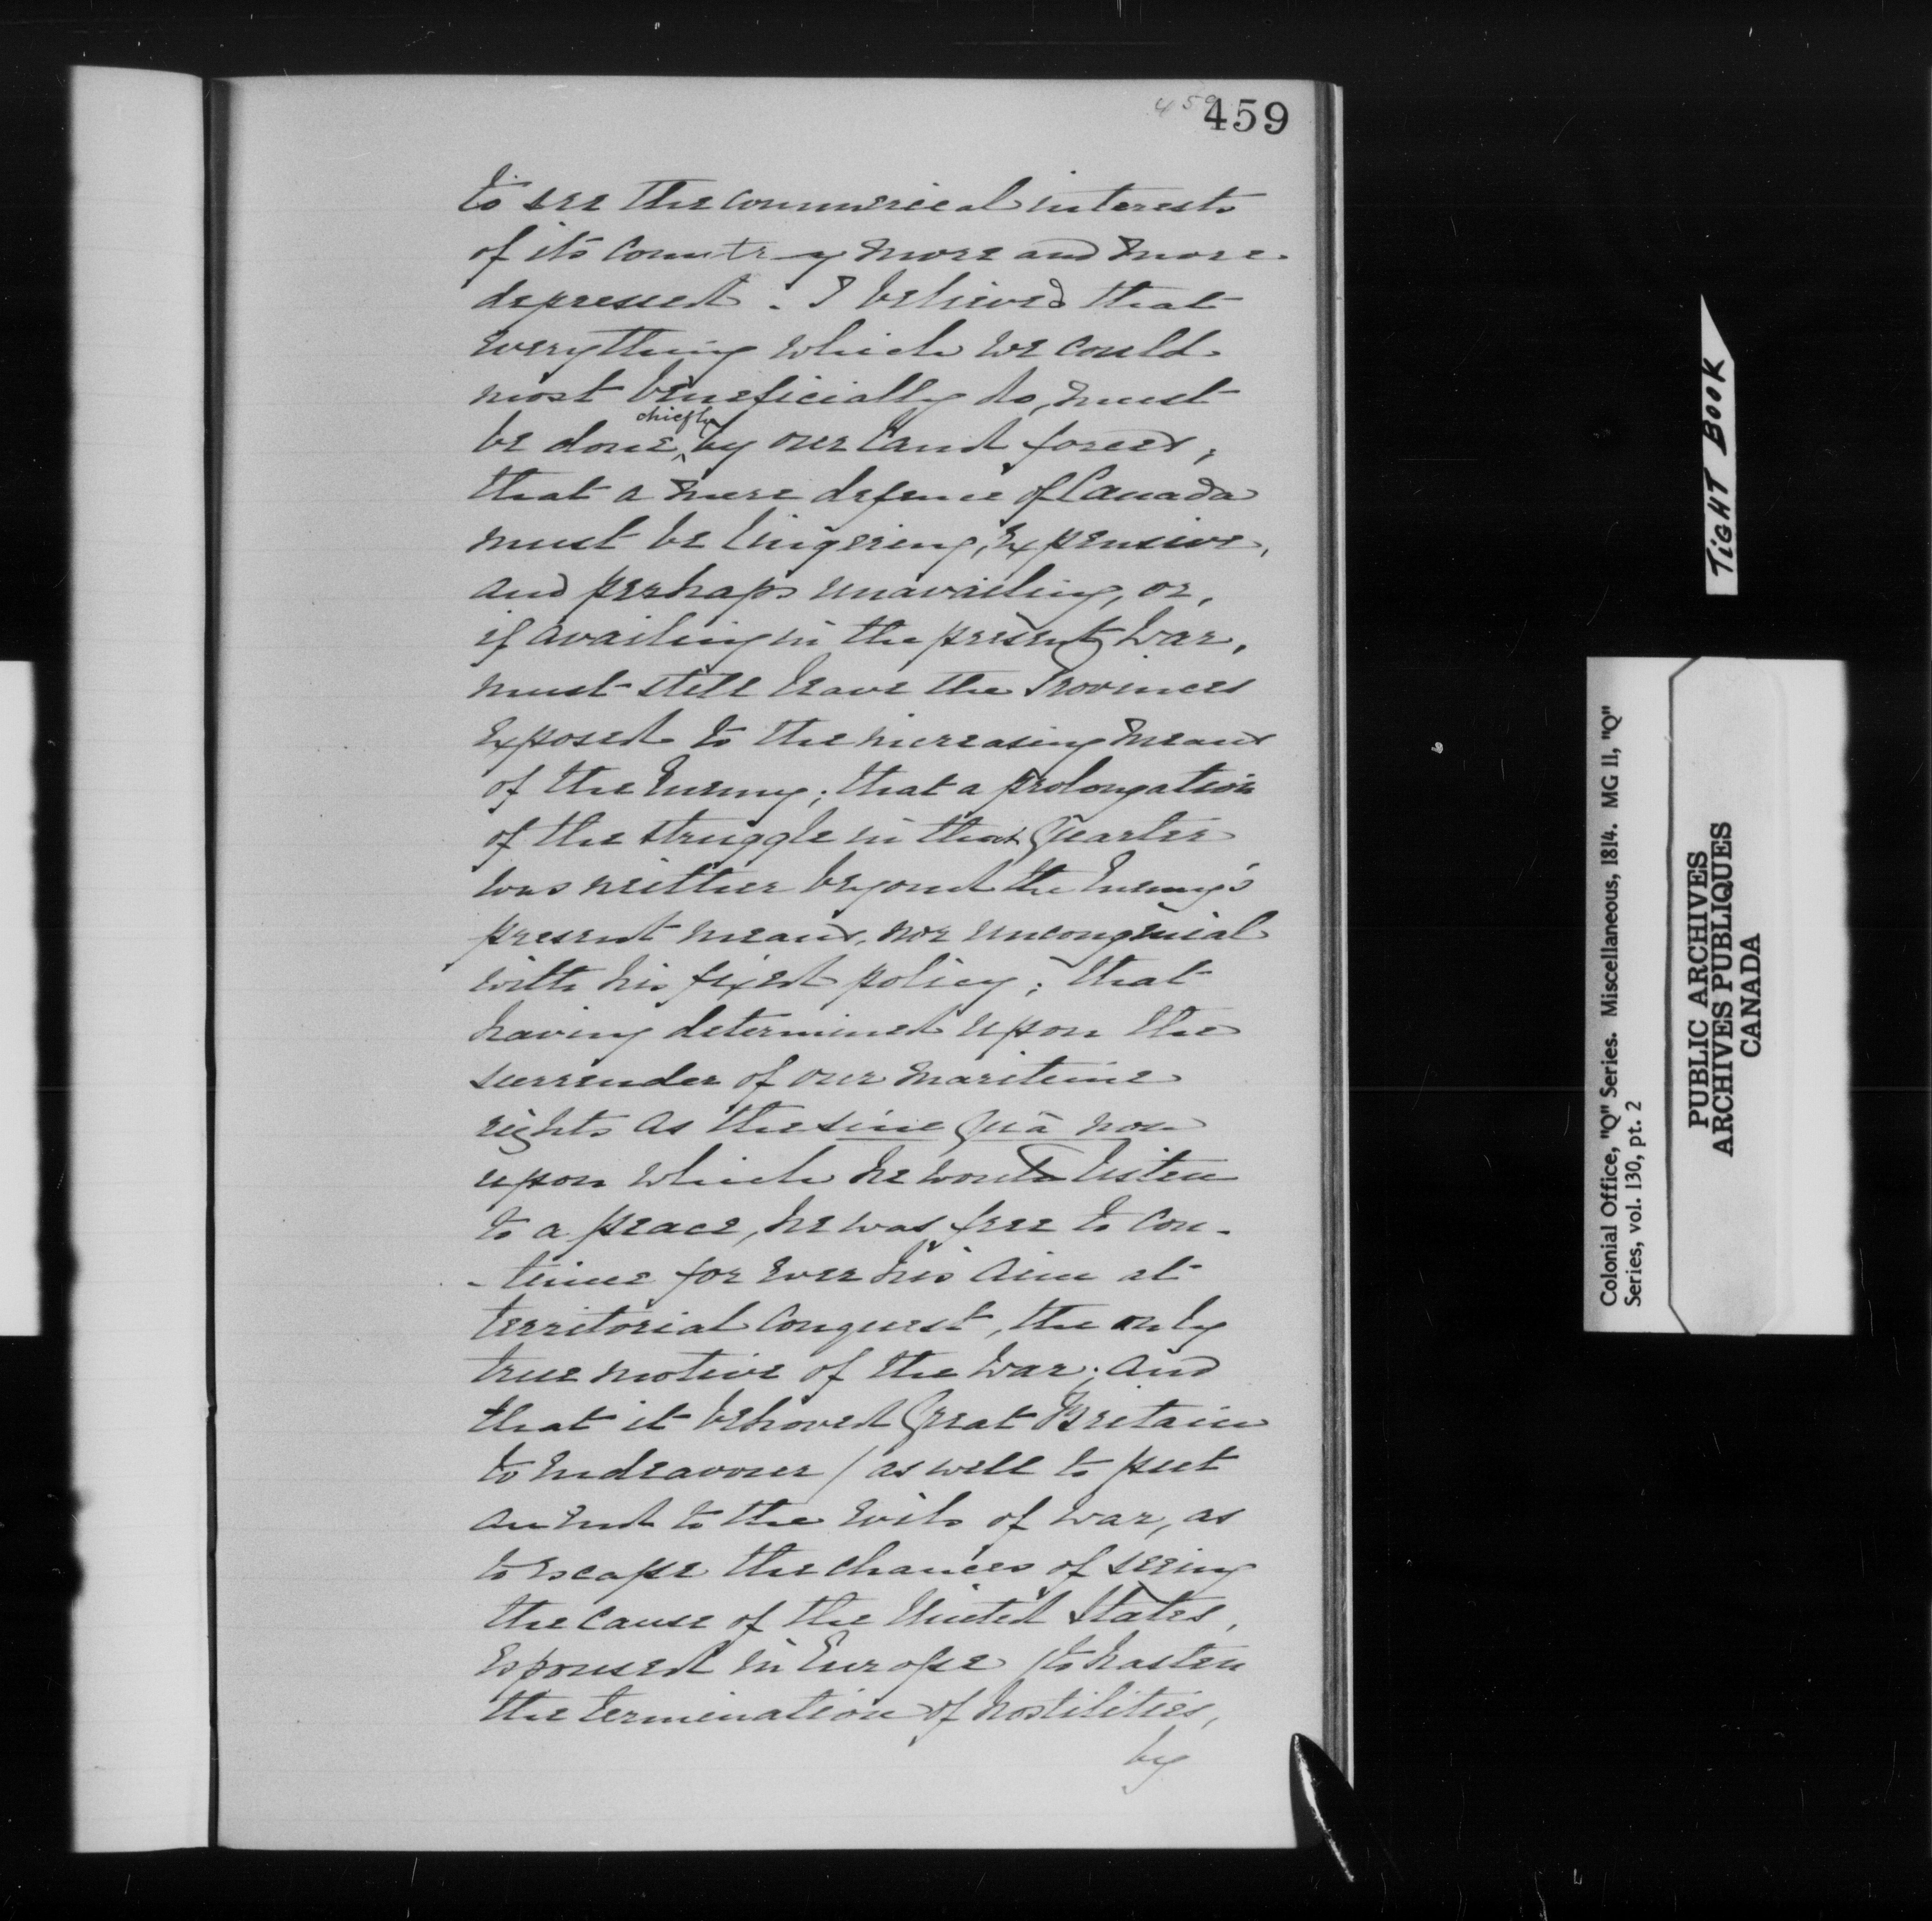 459
459
to see the commerical interests
of its country more and more
depressed. I believed that
everything which we could
most beneficially do, must
chiefly
be done, by our land forces;
that a mere defence of Canada
must be lingering, expensive,
and perhaps unavailing, or,
if availing in the present war,
must still leave the Provinces
exposed to the increasing means
of the Enemy; that a prolongation
of the struggle in that Quarter
was neither beyond the Enemy's
present means, nor uncongenial
with his fixed policy; that
having determined upon the
surrender of our maritime
rights as the sine quâ non
upon which he would listen
to a peace, he was free to con-
-tinue for ever his aim at
territorial conquest, the only
true motive of the war; and
that it behoved Great Britain
to endeavour / as well to put
an end to the evils of war, as
to escape the chances of seeing
the cause of the United States,
espoused in Europe / to hasten
the termination of hostilities,
by
TIGHT BOOK
Colonial Office, "Q" Series. Miscellaneous, 1814. MG 11, "Q"
Series, vol. 130, pt. 2
PUBLIC ARCHIVES
ARCHIVES PUBLIQUES
CANADA